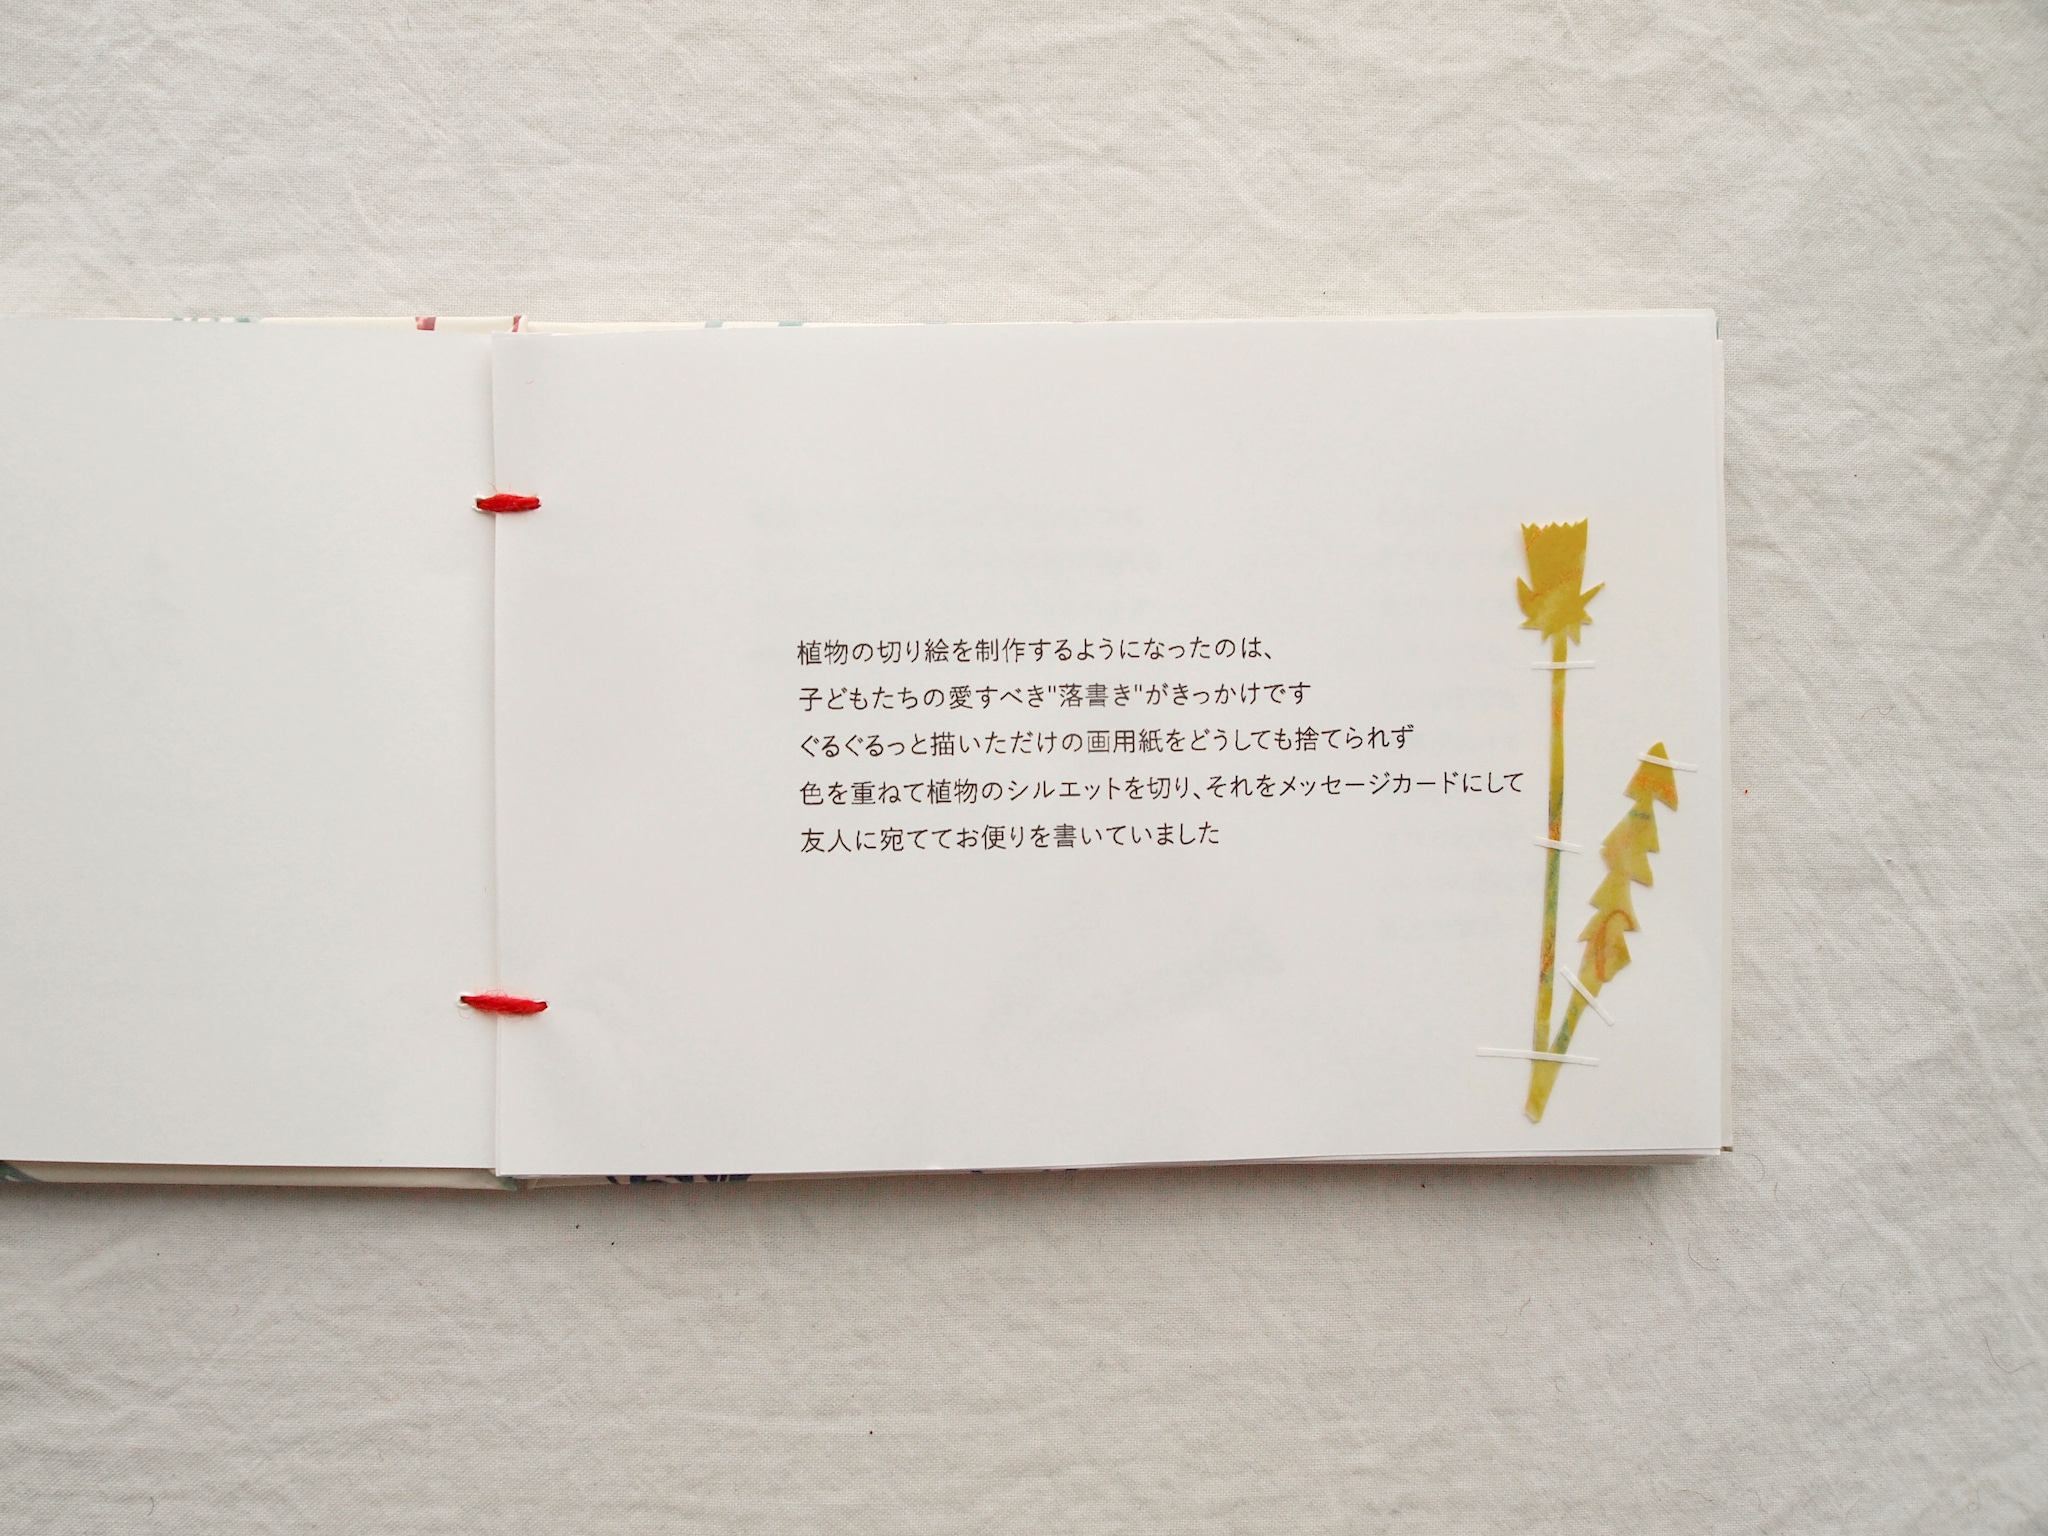 植物の切り絵を制作するようになったのは、
子どもたちの愛すべき"落書き"がきっかけです
ぐるぐるっと描いただけの画用紙をどうしても捨てられず
色を重ねて植物のシルエットを切り、それをメッセージカードにして
友人に宛ててお便りを書いていました